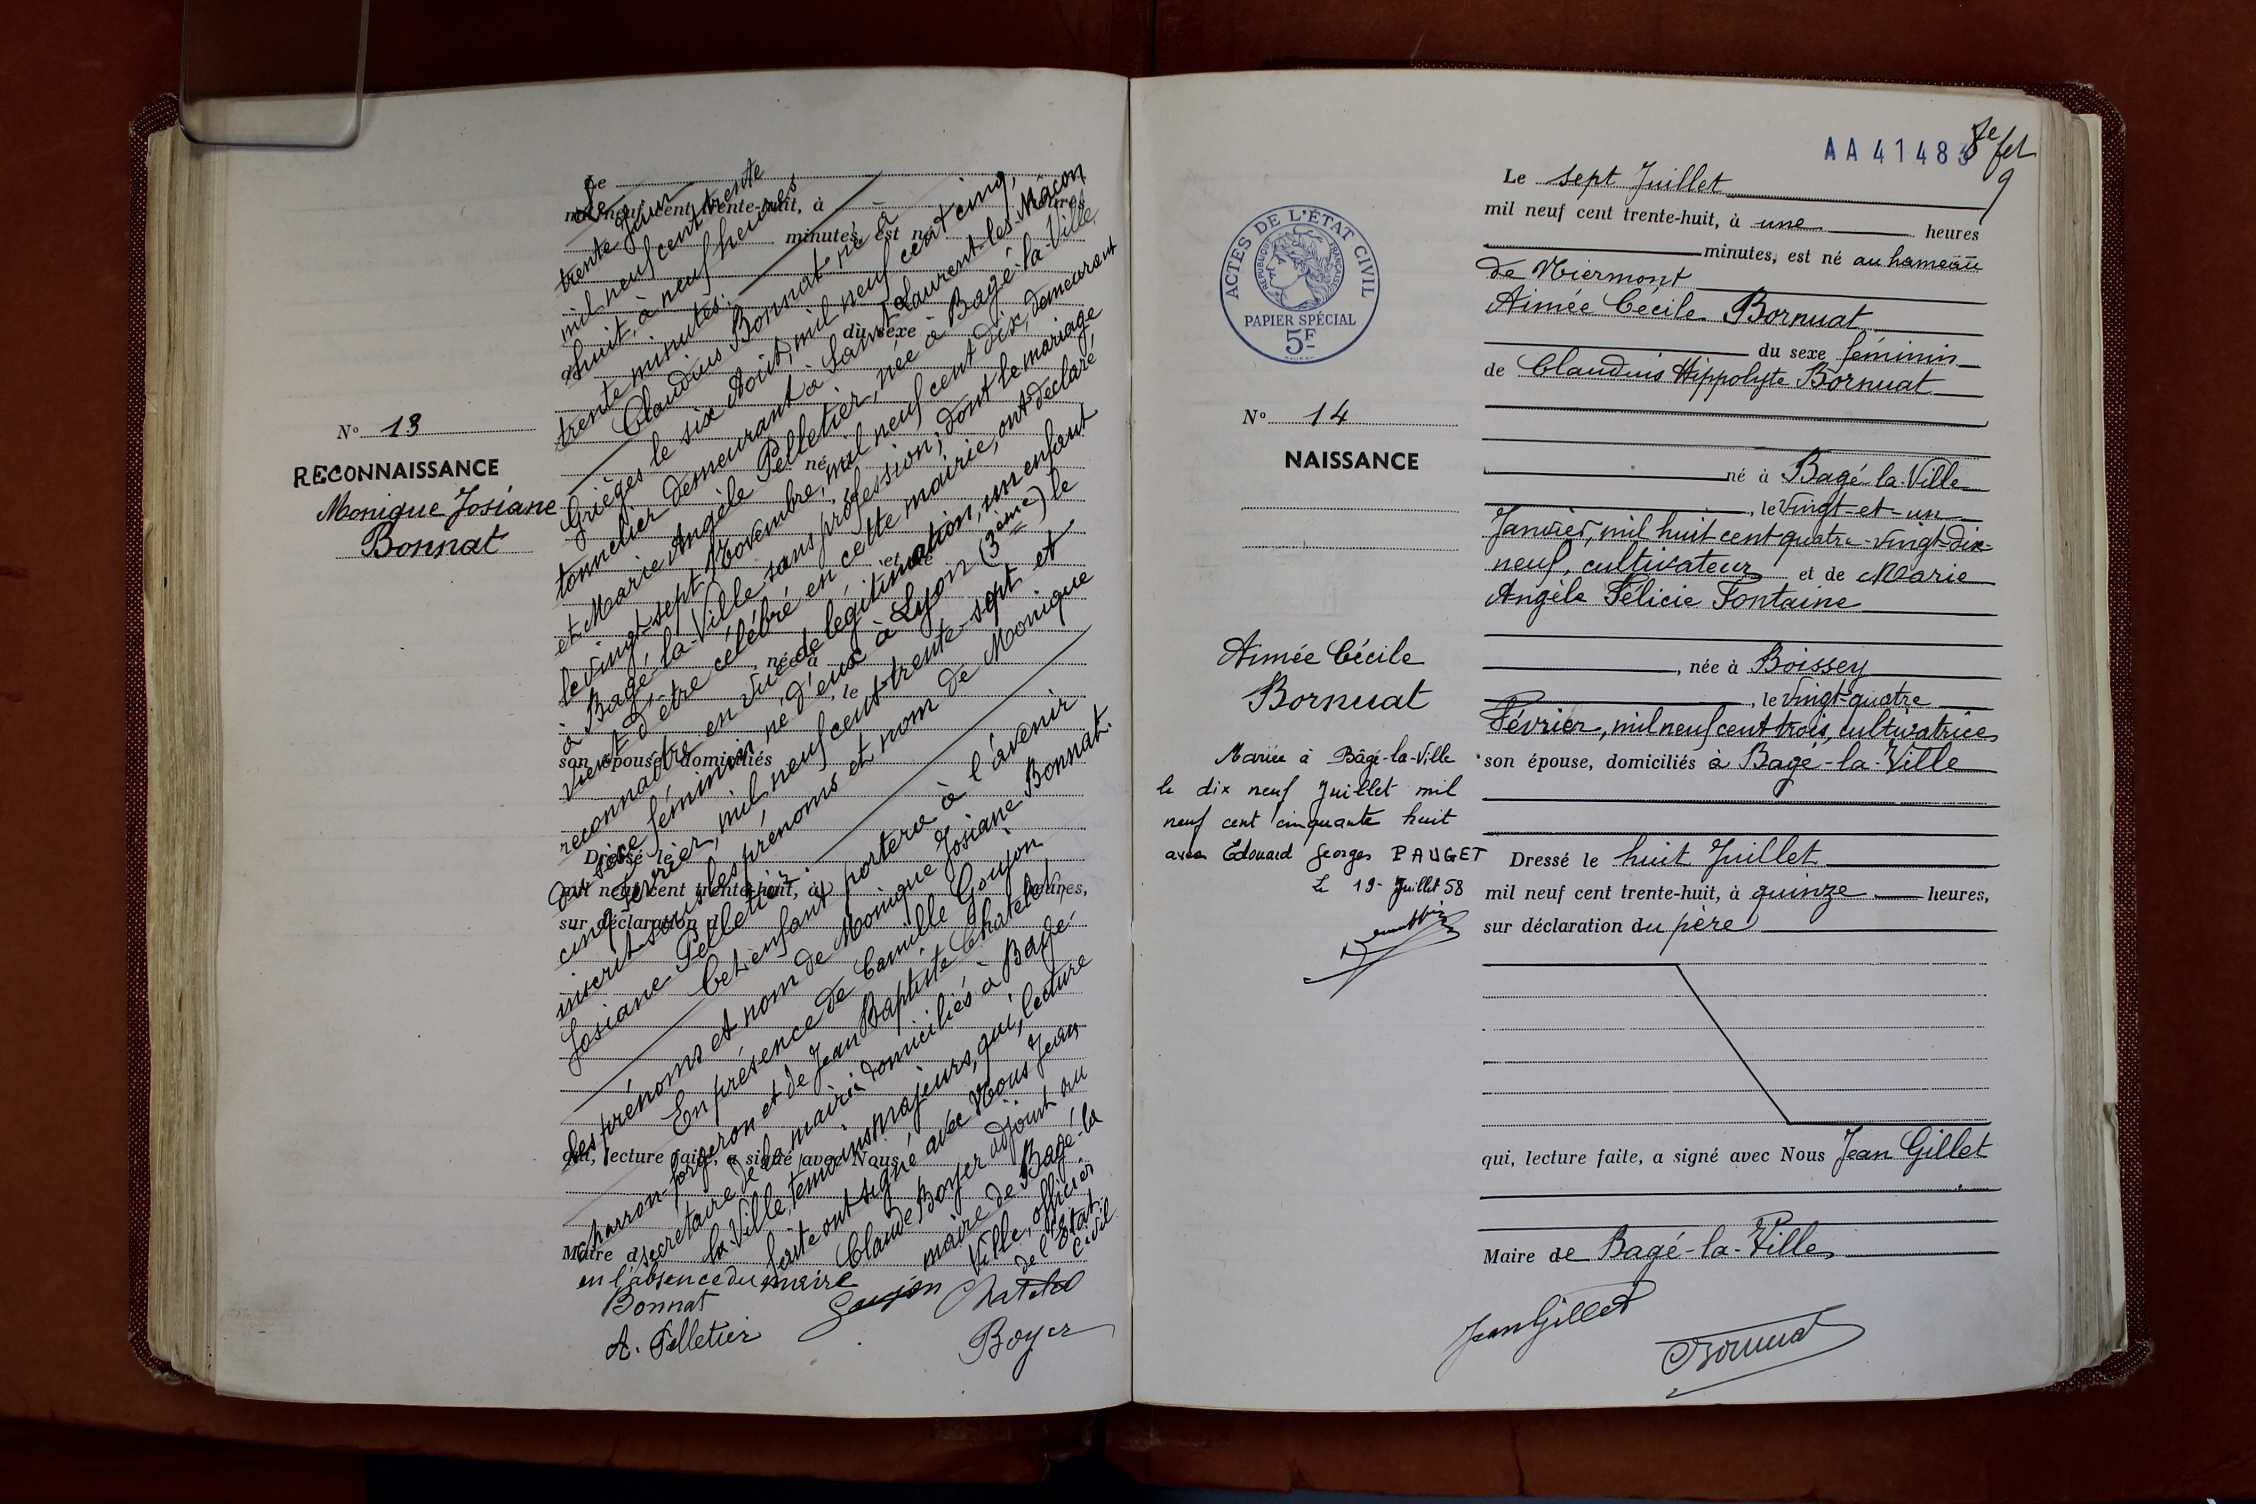 N° 13
RECONNAISSANCE
Monique Josiane
Bonnat
Le
mil neuf cent trente-huit, à heures
minutes, est né
du sexe
né
et de
née à
, le
son épouse, domiciliés
Dressé le
mil neuf cent trente-huit, à heures,
sur déclaration d
qui, lecture faite, a signé avec Nous
Maire d
Le
trente Juin
mil neuf cent trente
huit, à neuf heures
trente minutes.
Claudius Bonnat né à
Grièges le six Août, mil neuf cent cinq,
tonnelier demeurant à Saint Laurent-les-Mâcon
et Marie Angèle Pelletier, née à Bagé-la-Ville
le vingt-sept Novembre, mil neuf cent dix, demeurant
à Bagé-la-Ville sans profession, dont le mariage
vient d'être célébré en cette mairie, ont déclaré
reconnaître en vue de légitimation, un enfant
du sexe féminin né d'eux à Lyon (3ème) le
cinq Février, mil neuf cent trente-sept et
inscrit sous les prénoms et nom de Monique
Josiane Pelletier.
Cet enfant portera à l'avenir
les prénoms et nom de Monique Josiane Bonnat.
En présence de Camille Goujon
charron-forgeron et de Jean Baptiste Chatelet,
secrétaire de la mairie domiciliés à Bagé-
la-Ville, témoins majeurs, qui, lecture
faite ont signé avec Nous Jean
Claude Boyer adjoint au
maire de Bagé-la
Ville, officier
de l'Etat
Civil
en l'absence du maire
Bonnat
Goujon
Chatelet
A. Pelletier
Boyer
AA 41483
ACTES DE L'ÉTAT CIVIL
RÉPUBLIQUE FRANÇAISE
PAPIER SPÉCIAL
5F
N° 14
NAISSANCE
Aimée Cécile
Bornuat
Mariée à Bâgé-la-Ville
le dix neuf Juillet mil
neuf cent cinquante huit
avec Edouard Georges PAUGET
Le 19 Juillet 58
Le sept Juillet
mil neuf cent trente-huit, à une heures
minutes, est né au hameau
de Niermont
Aimée Cécile Bornuat
du sexe féminin
de Claudius Hippolyte Bornuat
né à Bagé-la-Ville
, le vingt-et-un
Janvier, mil huit cent quatre-vingt-dix-
neuf, cultivateur et de Marie
Angèle Félicie Fontaine
, née à Boissey
, le vingt-quatre
Février, mil neuf cent trois, cultivatrice
son épouse, domiciliés à Bagé-la-Ville
Dressé le huit Juillet
mil neuf cent trente-huit, à quinze heures,
sur déclaration du père
qui, lecture faite, a signé avec Nous Jean Gillet
Maire de Bagé-la-Ville
Jean Gillet
Bornuat